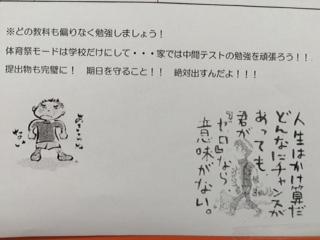 ※どの教科も偏りなく勉強しましょう！
体育祭モードは学校だけにして・・・家では中間テストの勉強を頑張ろう！！
提出物も完璧に！　期日を守ること！！　絶対出すんだよ！！！
人生はかけ算だ
どんなにチャンスが
あっても
君が
「ゼロ」なら
意味がない。